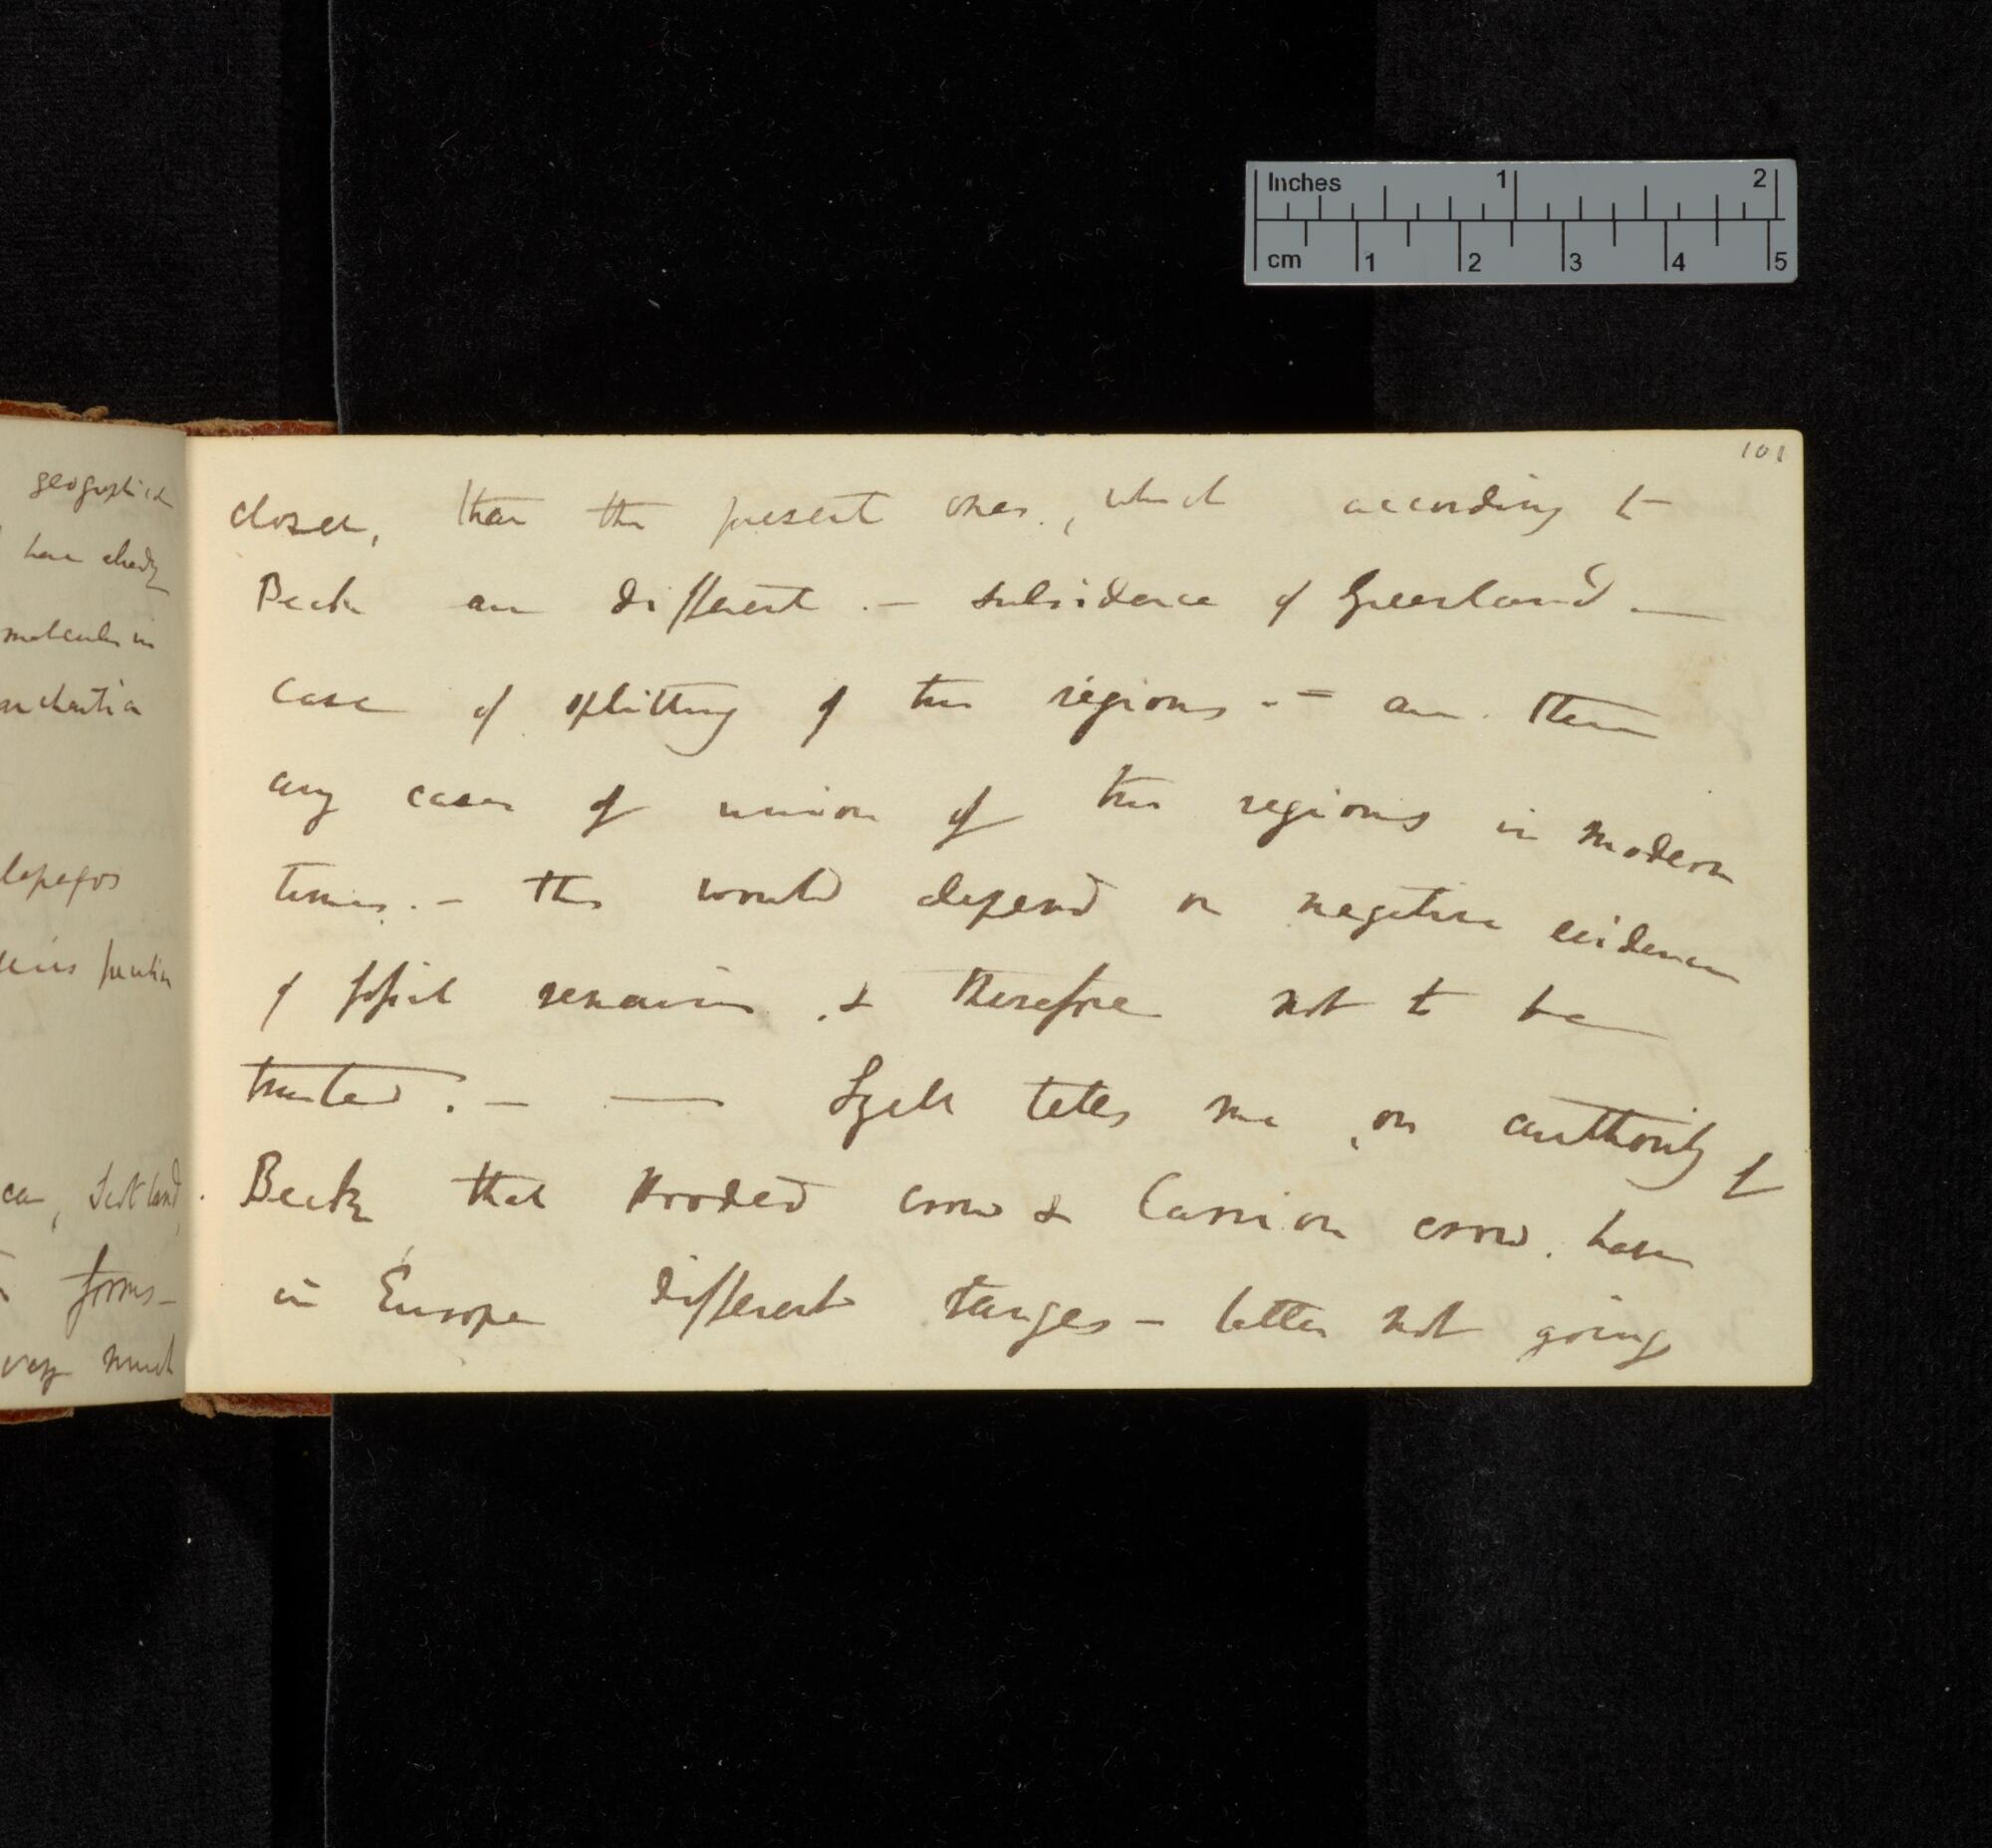 geographical
have already
molecules in

lapagos

Scotland,
forms –
very much
101
closer, than the present ones, which according to
Beck are different. – subsidence of Greenland –
case of splitting of two regions. – are there
any cases of union of two regions in modern
times. – this would depend on negative evidence
of fossil remains, & therefore not to be
trusted. – — Lyell tells me, on authority of
Beck that Hooded crow & Carrion crow. have
in Europe different ranges – latter not going
Inches 1 2
cm 1 2 3 4 5